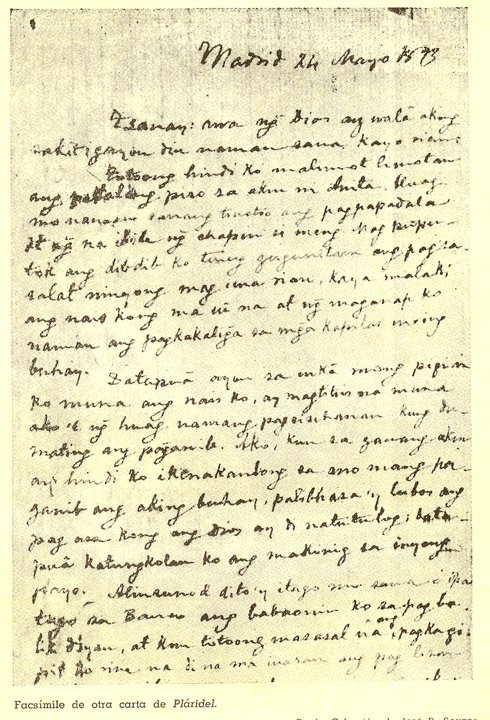 Madrid 24 Mayo 1893
Tsanay: awa ng Dios ay walâ akong
sakit; gayon din naman sana kayo riang
totoong hindi ko malimot limotan
ang piso sa akin ni Anita. Huag
mo nanasanang
at ng na bili ng chapin si Neneng. Nag puputok
ang dibdib ko tuing ang pagsasalat
ninyong mag iina rian, kaya malaki
ang nais kong ma uî na at ng maganap ko
naman ang pagkakaliga sa mga kapilas niaring
buhay.
Datapuâ ayon sa wikâ mong pigilin
ko muna ang nais ko, ay magtitiis na muna
ako't ng huag namang pagsisihanan kung dumating
ang panganib. Ako, kun sa ganang akin
ay hindi ko ikinakanlong sa ano mang panganib
ang aking buhay, palibhasa'y lubos ang
pag asa kong ang Dios ay di natutulog; datapuâ
katungkolan ko ang makinig sa inyong
payo. Alinsunod dito'y itago mo sana o ipatago
sa Banco ang babaonin ko sa pagbabalik
diyan, at kun totoong masasal na ang pagkagipit
ko na di na ma
Facsímile de otra carta de Pláridel.